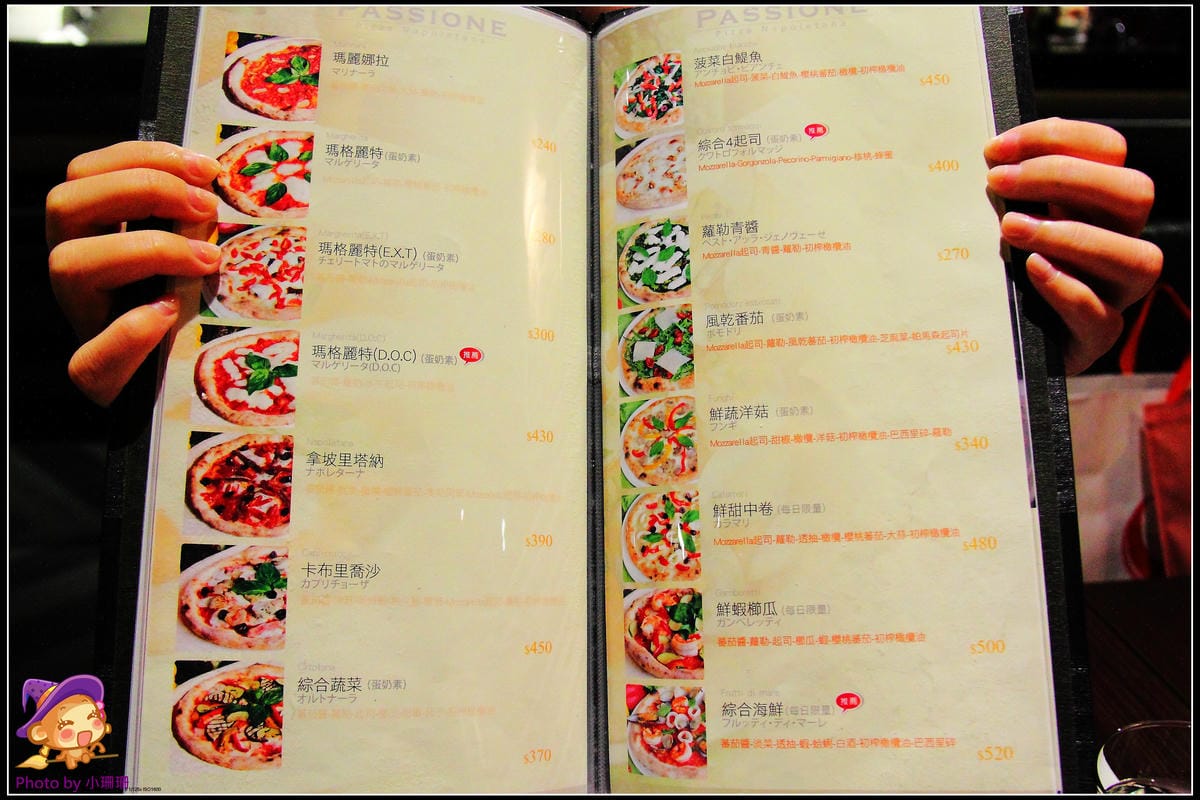 PASSIONE
Pizza Napoletana
瑪麗娜拉
マリナーラ
$240
Margherita
瑪格麗特(蛋奶素)
マルゲリータ
$280
Margherita(E.X.T)
瑪格麗特(E.X.T) (蛋奶素)
チェリートマトのマルゲリータ
$300
Margherita(D.O.C)
瑪格麗特(D.O.C) (蛋奶素) 推薦
マルゲリータ(D.O.C)
$430
Napoletana
拿坡里塔納
ナポレターナ
$390
卡布里喬沙
カプリチョーザ
$450
Ortolana
綜合蔬菜 (蛋奶素)
オルトナーラ
$370
PASSIONE
Pizza Napoletana
菠菜白鯷魚
アンチョビ・ビアンチェ
Mozzarella起司-菠菜-白鯷魚-櫻桃番茄-橄欖-初榨橄欖油
$450
綜合4起司 (蛋奶素) 推薦
クワトロフォルマッジ
Mozzarella-Gorgonzola-Pecorino-Parmigiano-核桃-蜂蜜
$400
蘿勒青醬
ペスト・アッラ・ジェノヴェーゼ
Mozzarella起司-青醬-蘿勒-初榨橄欖油
$270
Pomodori essiccati
風乾番茄 (蛋奶素)
ポモドリ
Mozzarella起司-蘿勒-風乾番茄-初榨橄欖油-芝麻葉-帕馬森起司片
$430
Funghi
鮮蔬洋菇 (蛋奶素)
フンギ
Mozzarella起司-甜椒-橄欖-洋菇-初榨橄欖油-巴西里碎-蘿勒
$340
Calamari
鮮甜中卷 (每日限量)
カラマリ
Mozzarella起司-蘿勒-透抽-橄欖-櫻桃番茄-大蒜-初榨橄欖油
$480
Gamberetti
鮮蝦櫛瓜 (每日限量)
ガンベレッティ
番茄醬-蘿勒-起司-櫛瓜-蝦-櫻桃番茄-初榨橄欖油
$500
Frutti di mare
綜合海鮮 (每日限量) 推薦
フルッティ・ディ・マーレ
番茄醬-淡菜-透抽-蝦-蛤蜊-白酒-初榨橄欖油-巴西里碎
$520
Photo by 小珊珊